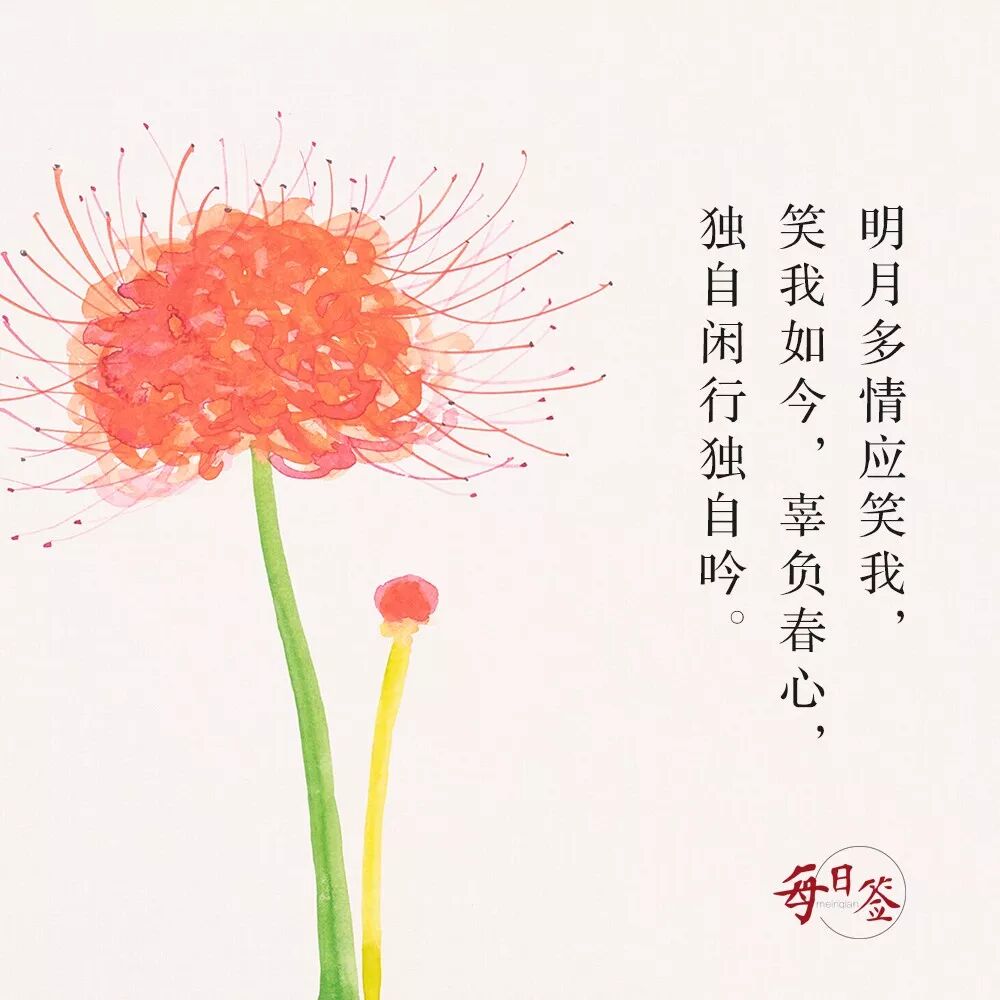 明月多情应笑我，
笑我如今，辜负春心，
独自闲行独自吟。
每日签
meirıqian